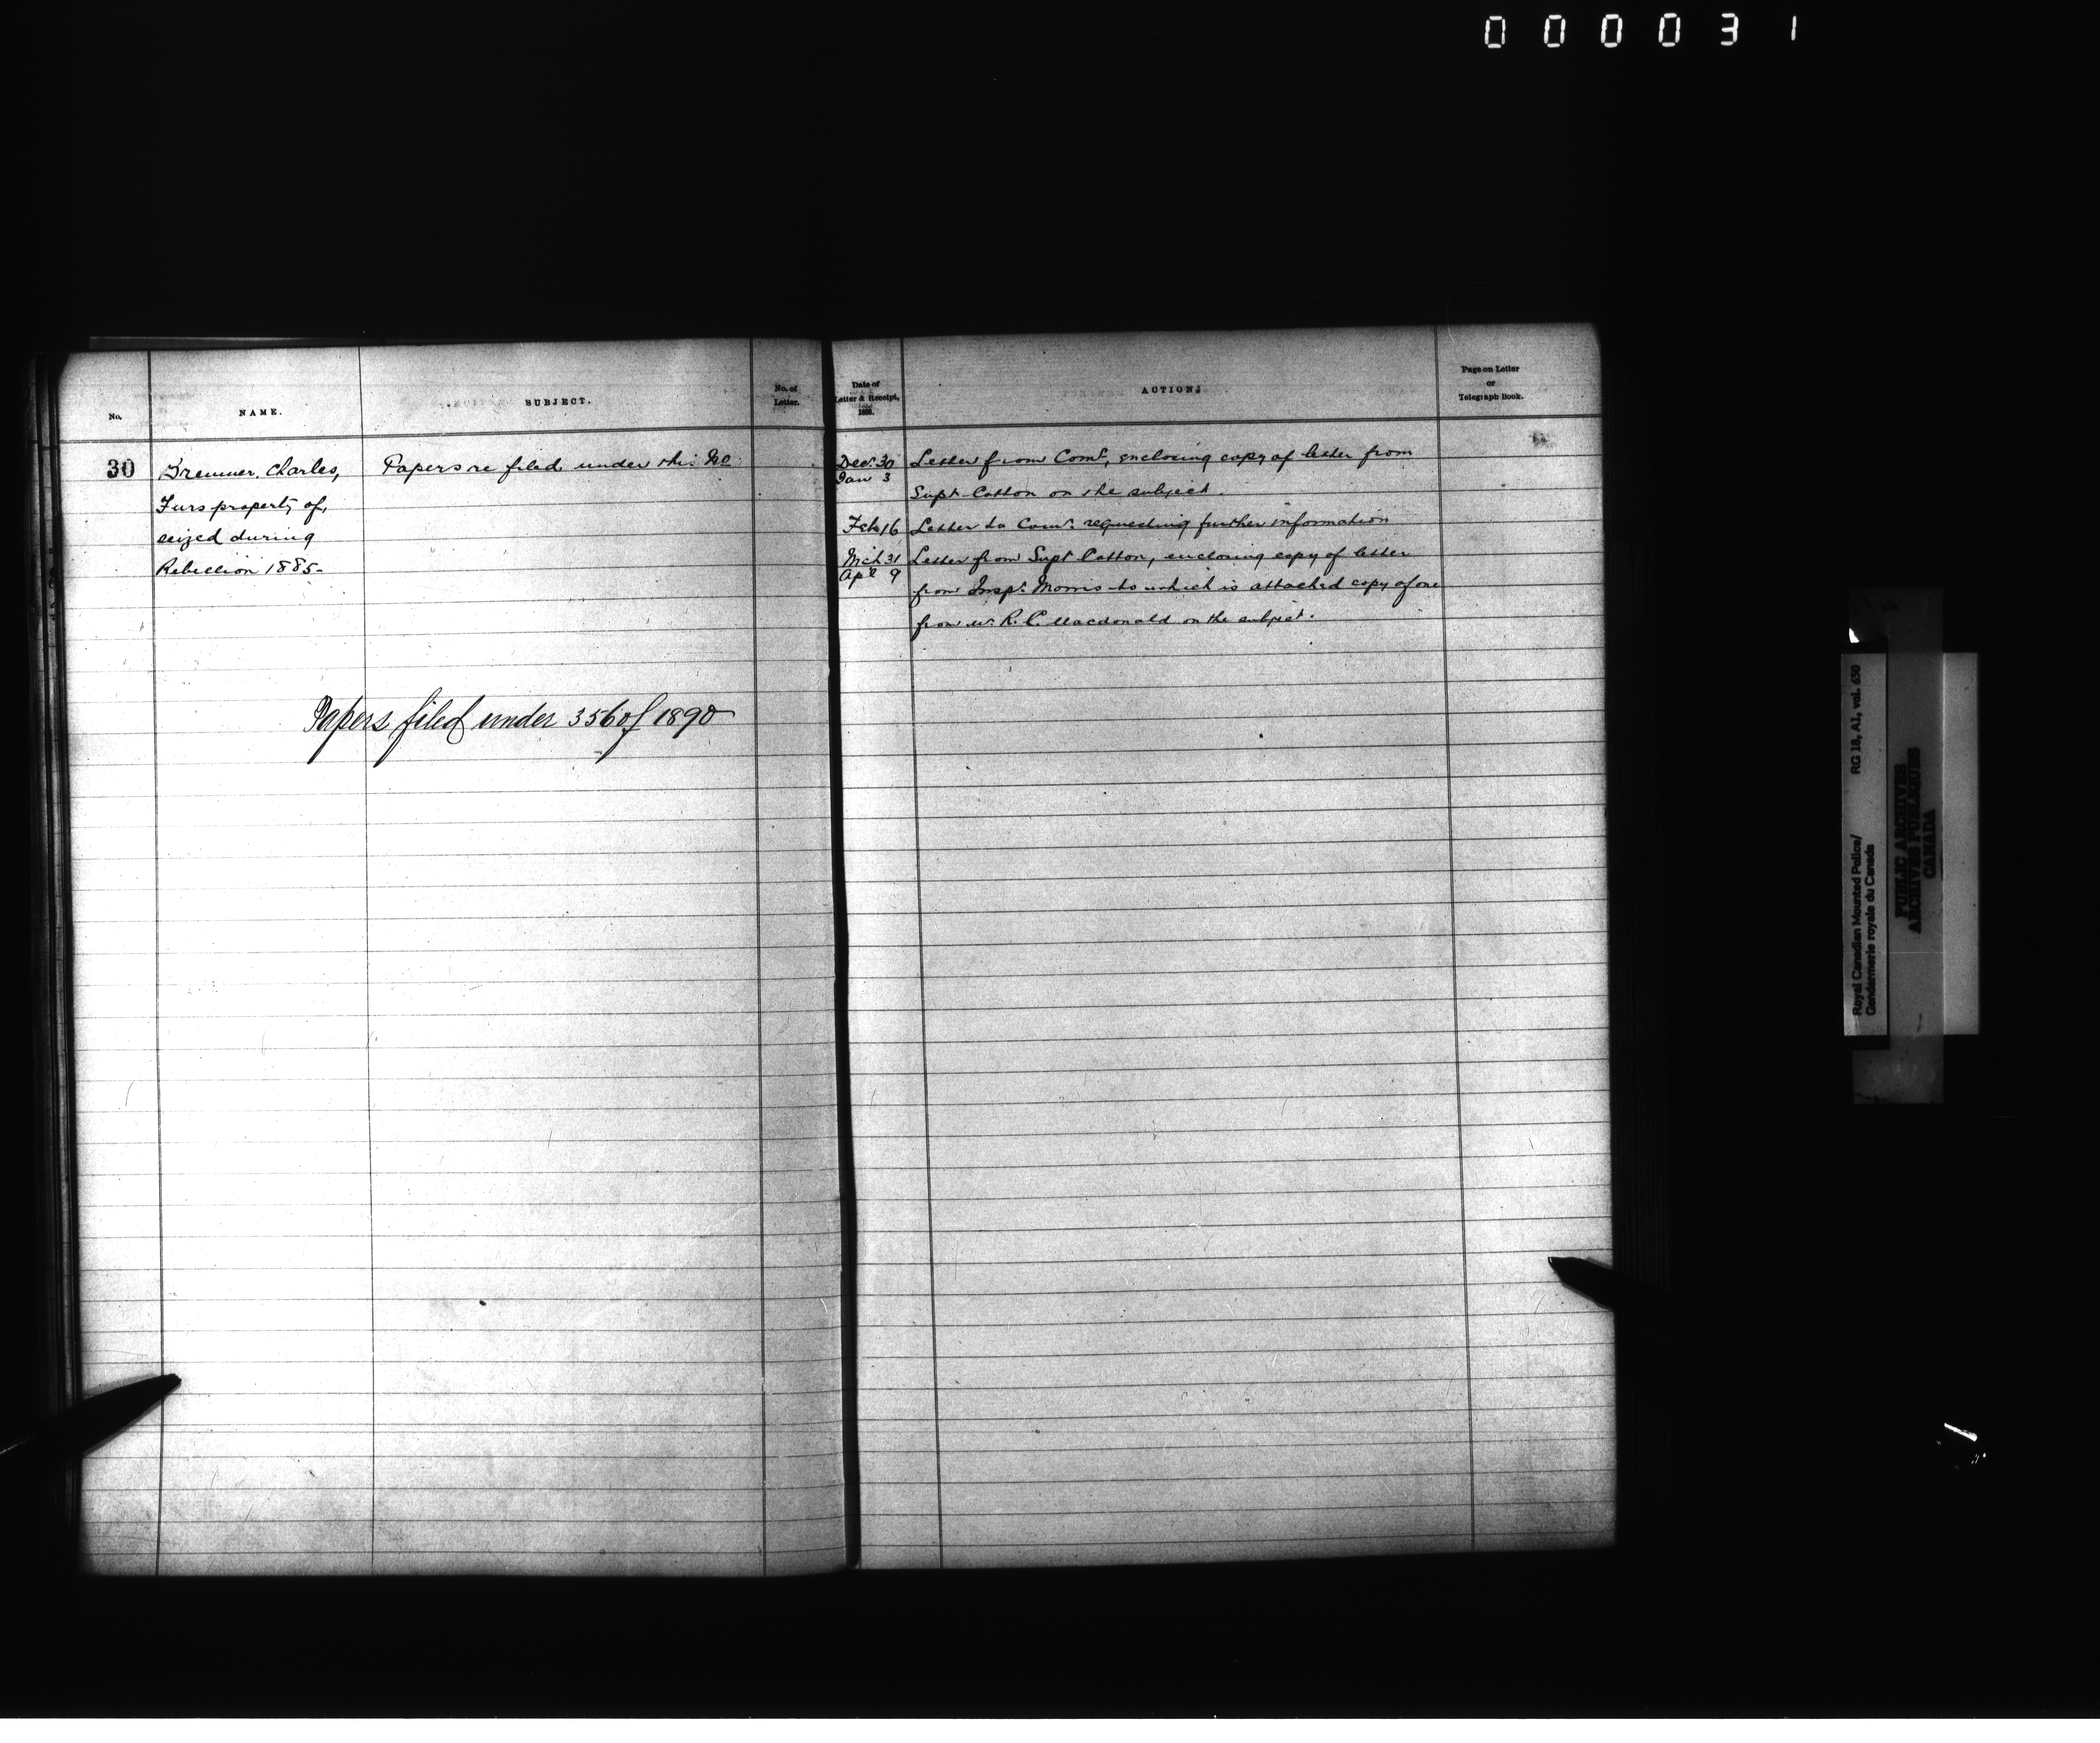 000031
No.
NAME.
SUBJECT.
No. of
Letter.
Date of
Letter & Receipt,
1888.
ACTION.
Page on Letter
or
Telegraph Book.
30
Bremner, Charles,
Furs property of,
seized during
Rebellion 1885-
Papers re filed under this No.
Papers filed under 356 of 1890
Dec. 30
Jan 3
Letter from Comr, enclosing copy of letter from
Supt. Cotton on the subject.
Feb 16
Letter to Comr. requesting further information
Mch 31
Apl 9
Letter from Supt Cotton, enclosing copy of letter
from Inspr. Morris to which is attached copy of one
from Mr. R. C. Macdonald on the subject.
Royal Canadian Mounted Police/
Gendarmerie royale du Canada
RG 18, A1, vol. 650
PUBLIC ARCHIVES
ARCHIVES PUBLIQUES
CANADA